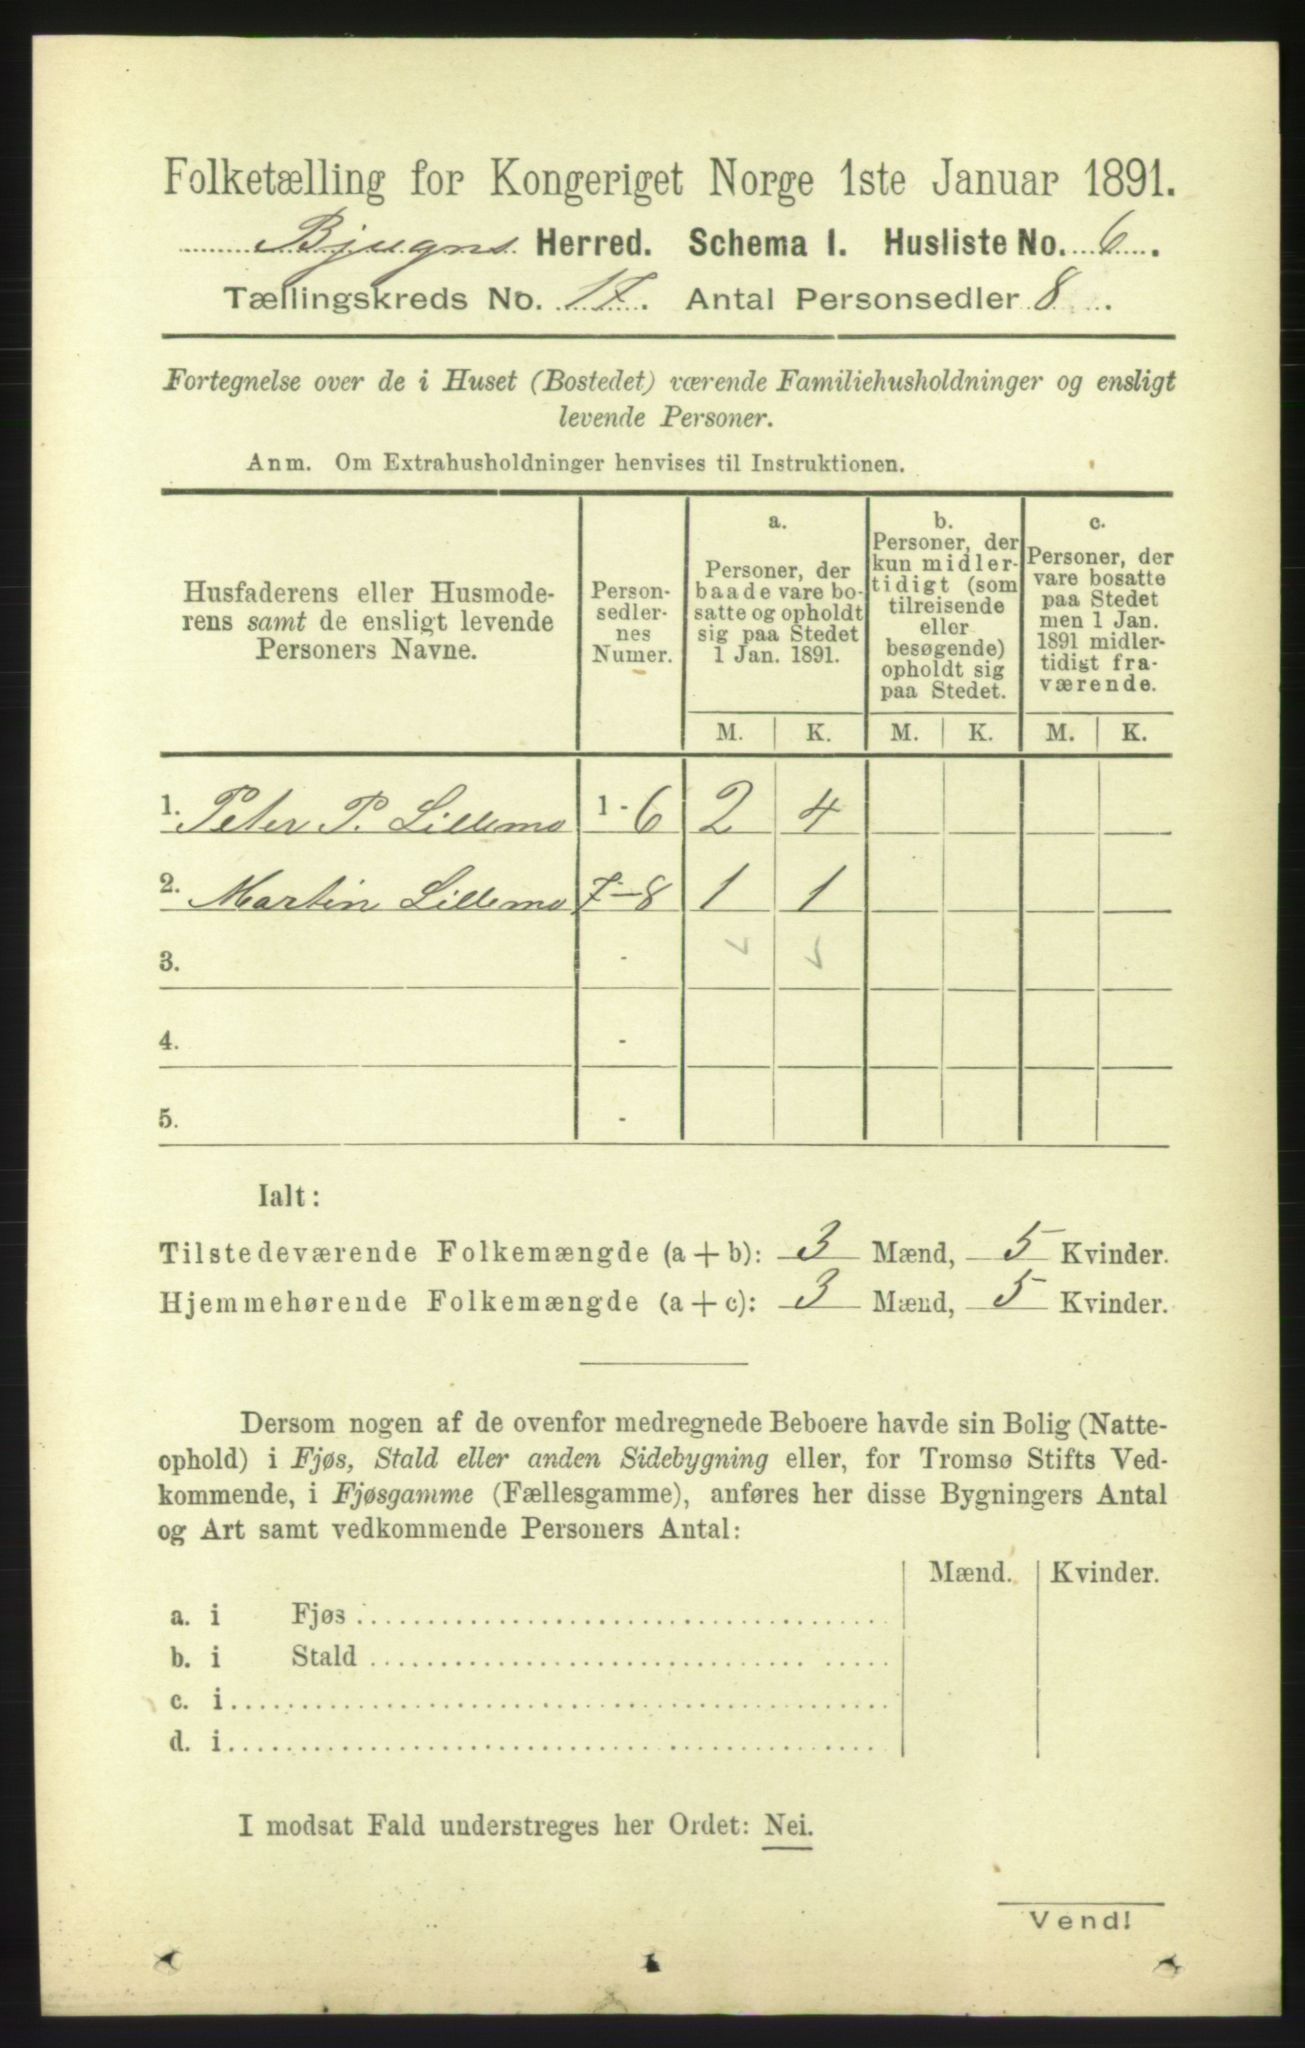 Folketælling for Kongeriget Norge 1ste Januar 1891.
Bjugns Herred. Schema I. Husliste No. 6.
Tællingskreds No. 17. Antal Personsedler 8.
Fortegnelse over de i Huset (Bostedet) værende Familiehusholdninger og ensligt
levende Personer.
Anm. Om Extrahusholdninger henvises til Instruktionen.
Husfaderens eller Husmode-
rens samt de ensligt levende
Personers Navne.
Person-
sedler-
nes
Numer.
a.
Personer, der
baade vare bo-
satte og opholdt
sig paa Stedet
1 Jan. 1891.
b.
Personer, der
kun midler-
tidigt (som
tilreisende
eller
besøgende)
opholdt sig
paa Stedet.
c.
Personer, der
vare bosatte
paa Stedet
men 1 Jan.
1891 midler-
tidigt fra-
værende.
M. K. M. K. M. K.
1. Peter P. Lillemo 1 - 6 2 4
2. Martin Lillemo 7-8 1 1
3. -
4. -
5. -
Ialt:
Tilstedeværende Folkemængde (a + b): 3 Mænd, 5 Kvinder.
Hjemmehørende Folkemængde (a + c): 3 Mænd, 5 Kvinder.
Dersom nogen af de ovenfor medregnede Beboere havde sin Bolig (Natte-
ophold) i Fjøs, Stald eller anden Sidebygning eller, for Tromsø Stifts Ved-
kommende, i Fjøsgamme (Fællesgamme), anføres her disse Bygningers Antal
og Art samt vedkommende Personers Antal:
Mænd. Kvinder.
a. i Fjøs
b. i Stald
c. i
d. i
I modsat Fald understreges her Ordet: Nei.
Vend!